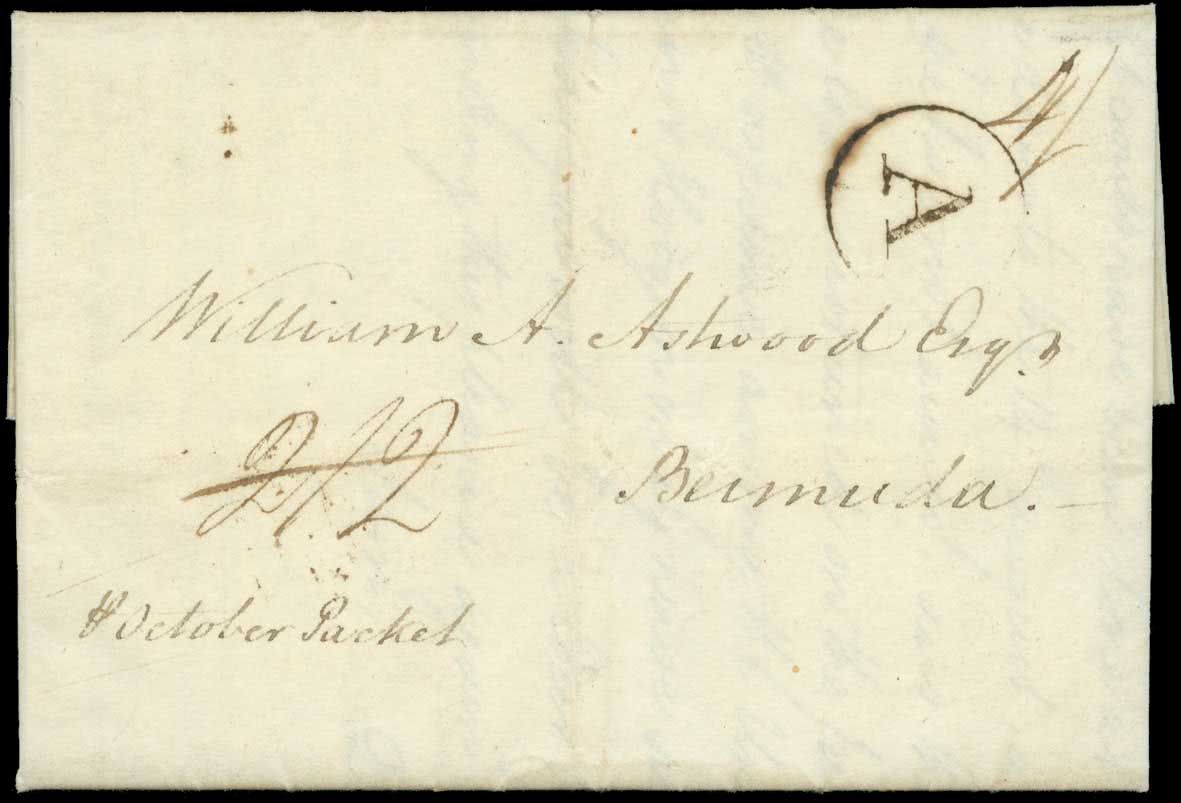 4/
A
William A. Ashwood Esqr
2/2
Bermuda.
October Packet